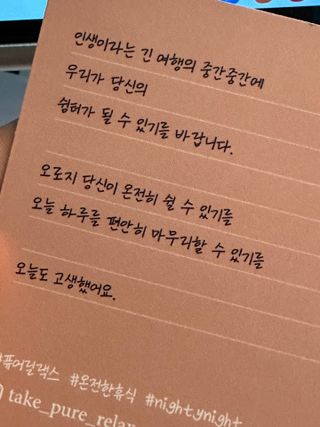 인생이라는 긴 여행의 중간중간에
우리가 당신의
쉼터가 될 수 있기를 바랍니다.
오로지 당신이 온전히 쉴 수 있기를
오늘 하루를 편안히 마무리할 수 있기를
오늘도 고생했어요.
#퓨어릴랙스 #온전한휴식 #nightynight
take_pure_relax